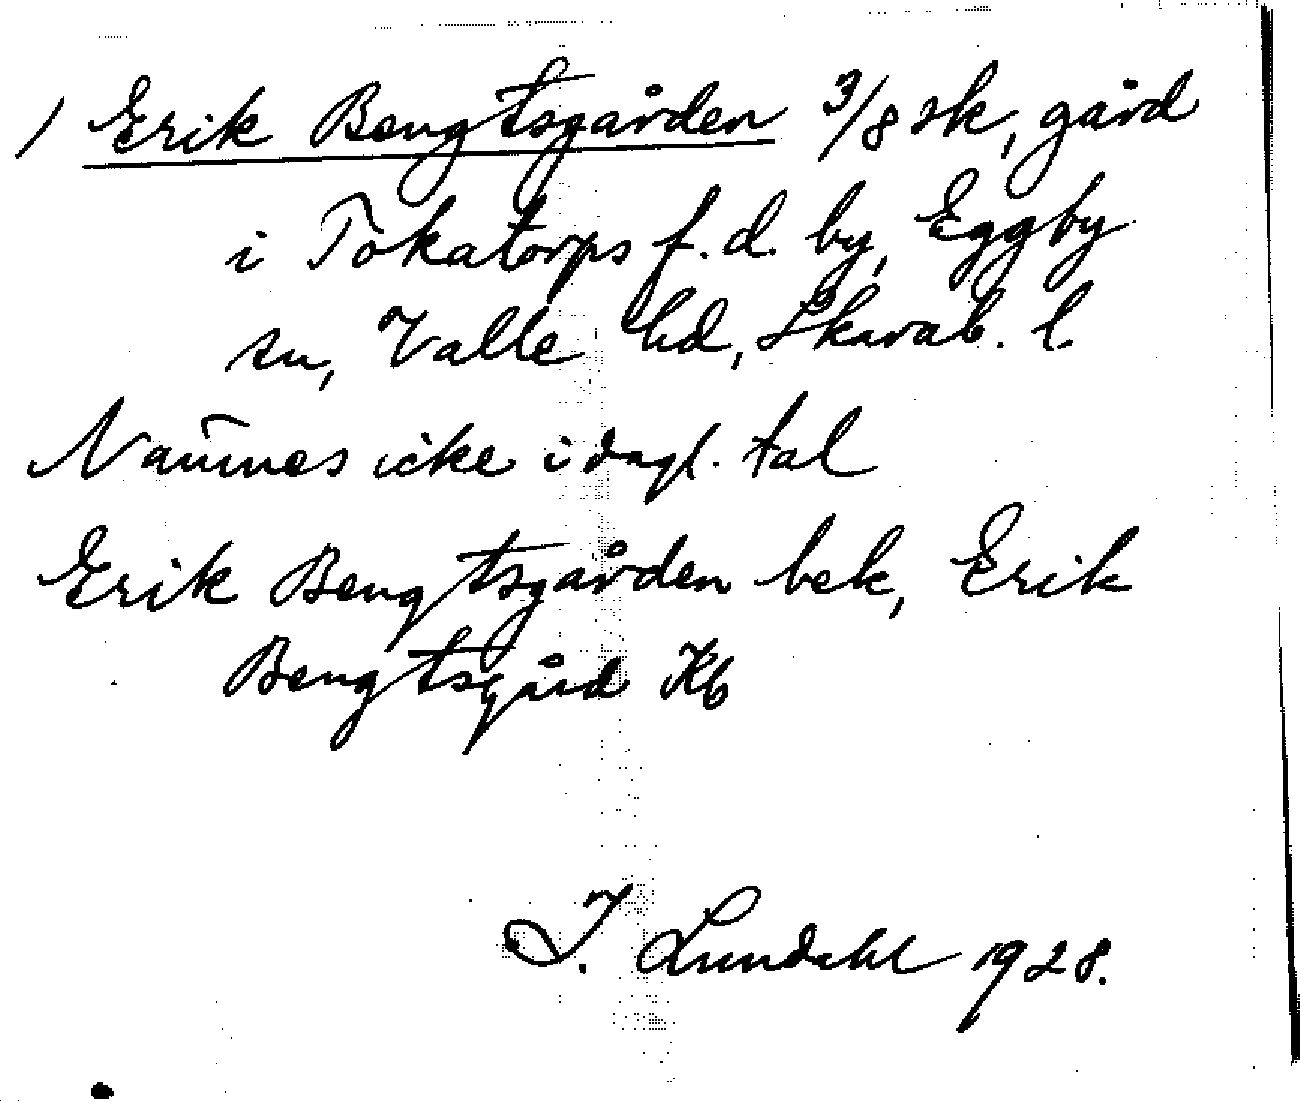 / Erik Bengtsgården 3/8 sk, gård
i Tokatorps f.d. by, Eggby
sn, Valle hd, Skarab. l.
Namnes icke i dagl. tal
Erik Bengtsgården bek, Erik
Bengtsgård Kb
I. Lundahl 1928.